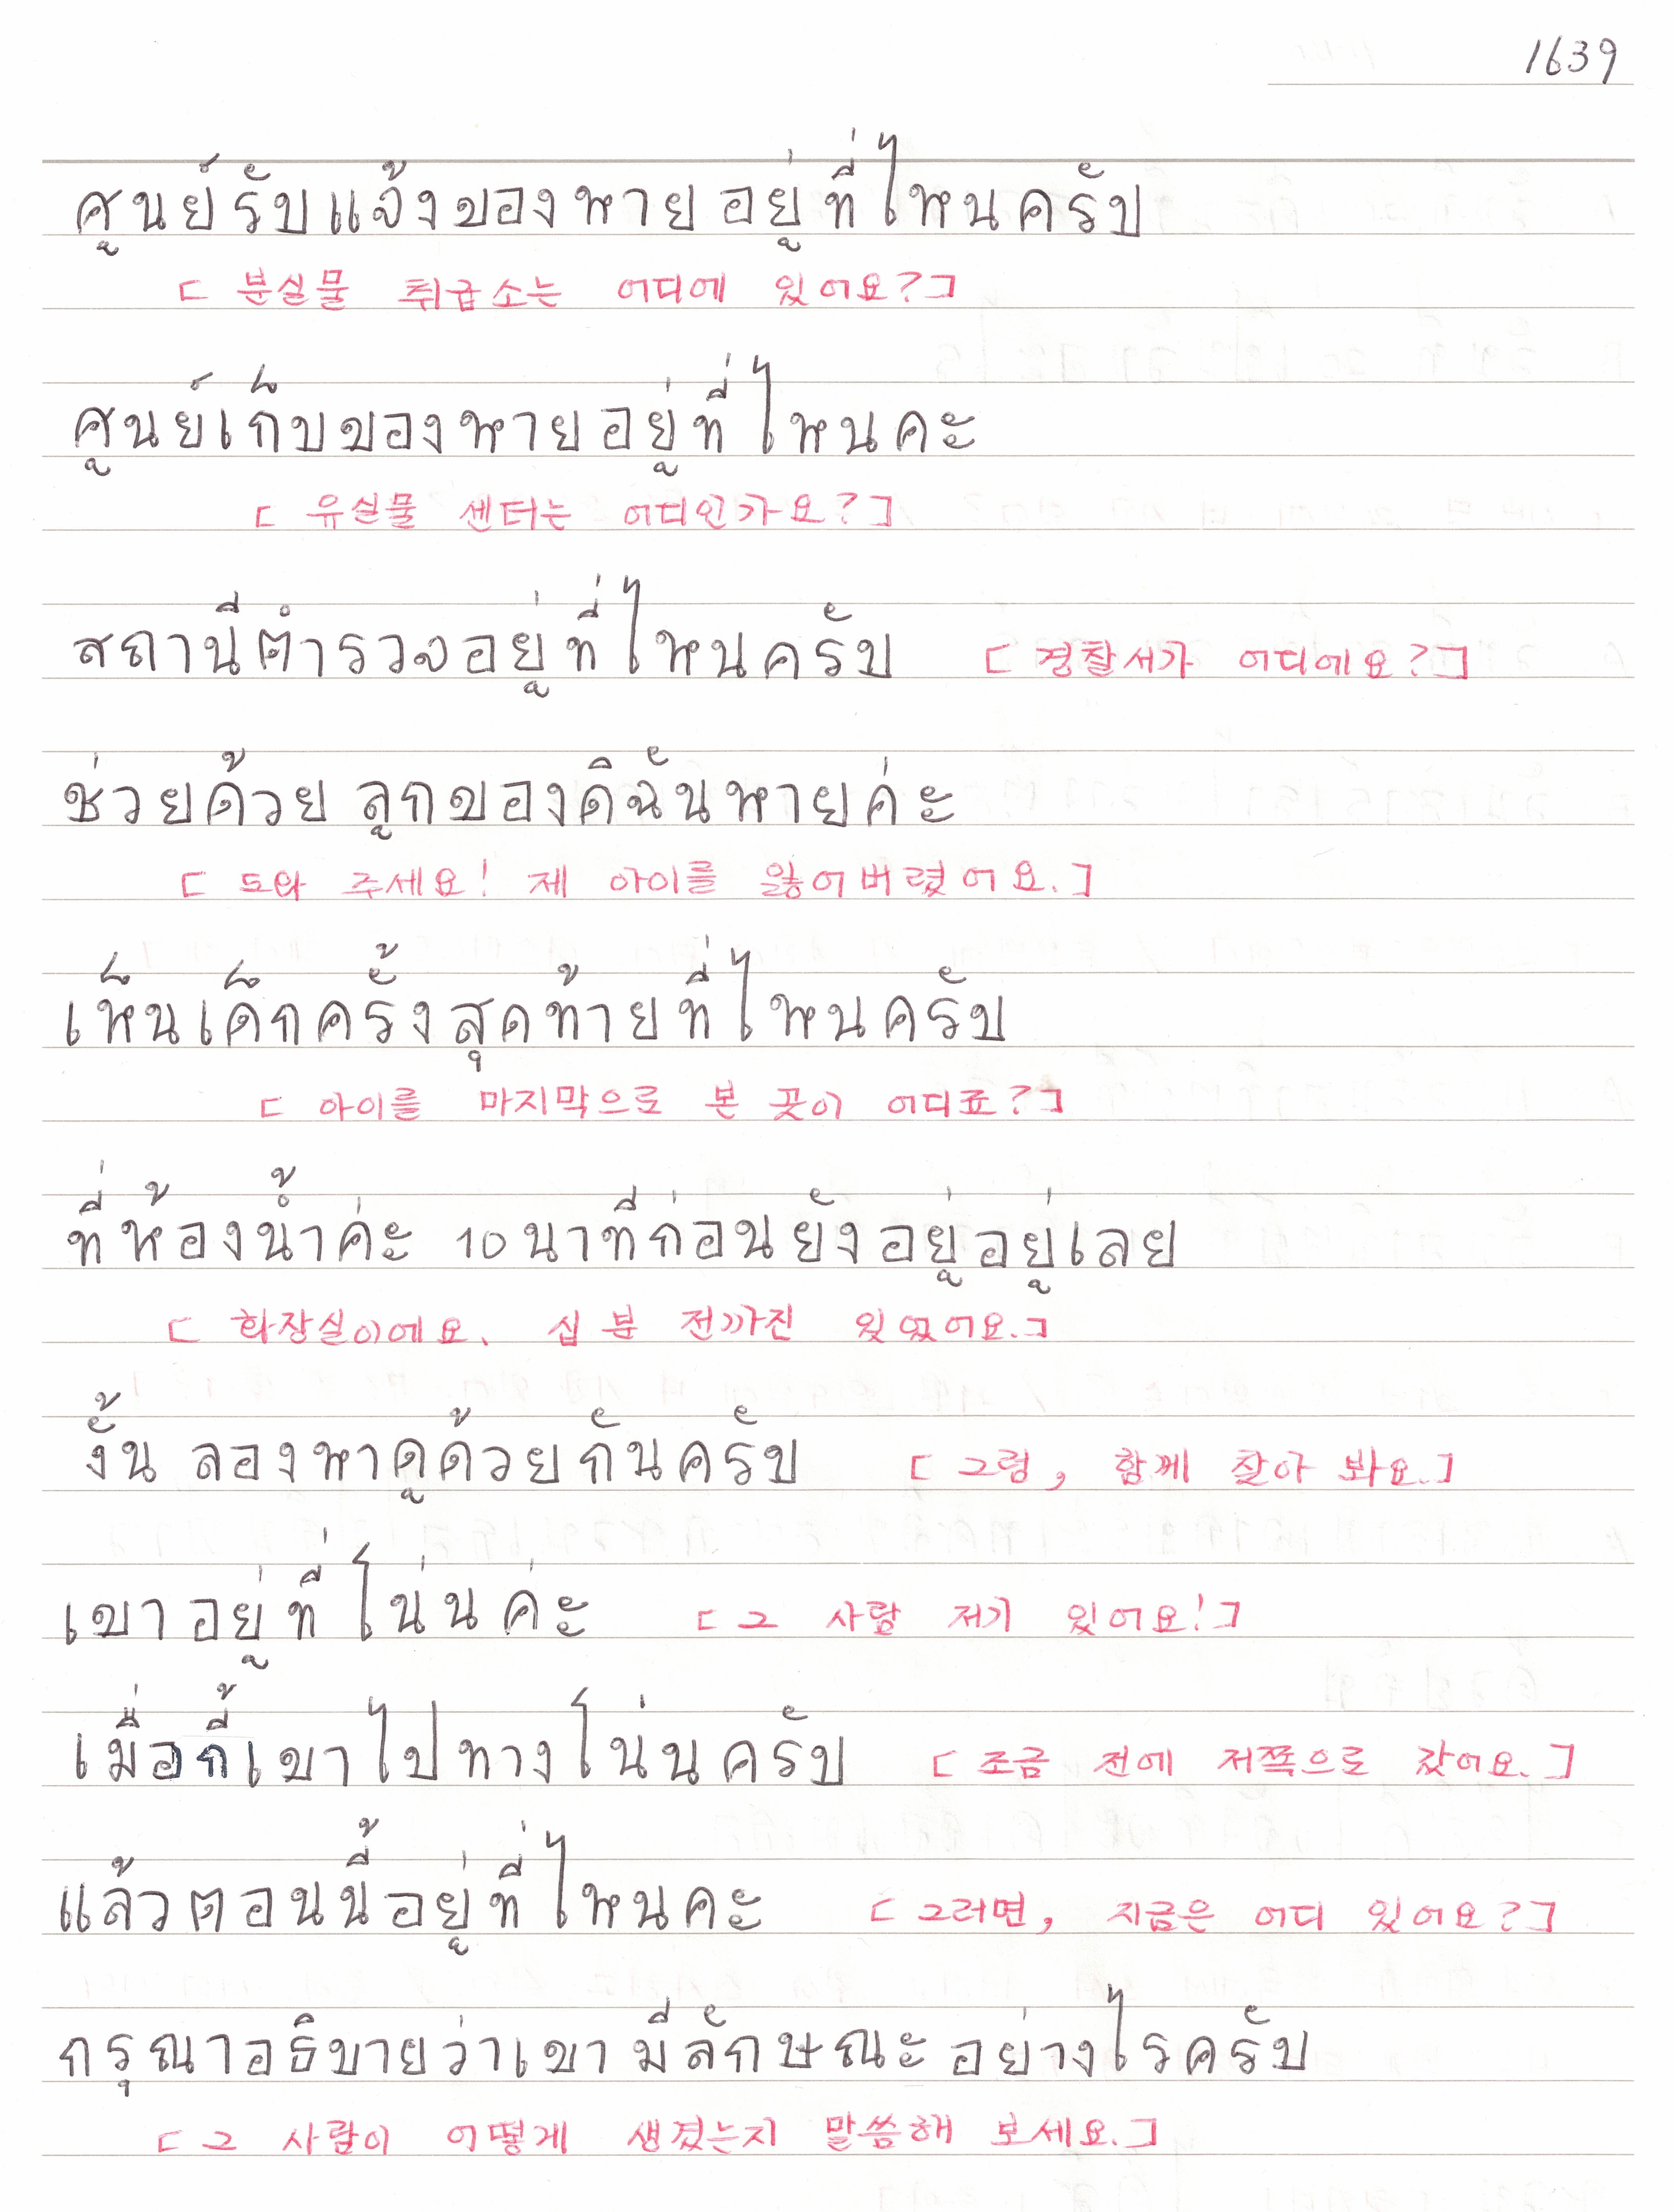 1639
ศูนย์รับแจ้งของหายอยู่ที่ไหนครับ
[분실물 취급소는 어디에 있어요?]
ศูนย์เก็บของหายอยู่ที่ไหนคะ
[유실물 센터는 어디인가요?]
สถานีตำรวจอยู่ที่ไหนครับ [경찰서가 어디에요?]
ช่วยด้วย ลูกของดิฉันหายค่ะ
[도와 주세요! 제 아이를 잃어버렸어요.]
เห็นเด็กครั้งสุดท้ายที่ไหนครับ
[아이를 마지막으로 본 곳이 어디죠?]
ที่ห้องน้ำค่ะ 10 นาทีก่อนยังอยู่อยู่เลย
[화장실이에요. 십 분 전까진 있었어요.]
งั้น ลองหาดูด้วยกันครับ [그럼, 함께 찾아 봐요.]
เขาอยู่ที่โน่นค่ะ [그 사람 저기 있어요!]
เมื่อกี้เขาไปทางโน่นครับ [조금 전에 저쪽으로 갔어요.]
แล้วตอนนี้อยู่ที่ไหนคะ [그러면, 지금은 어디 있어요?]
กรุณาอธิบายว่าเขามีลักษณะอย่างไรครับ
[그 사람이 어떻게 생겼는지 말씀해 보세요.]